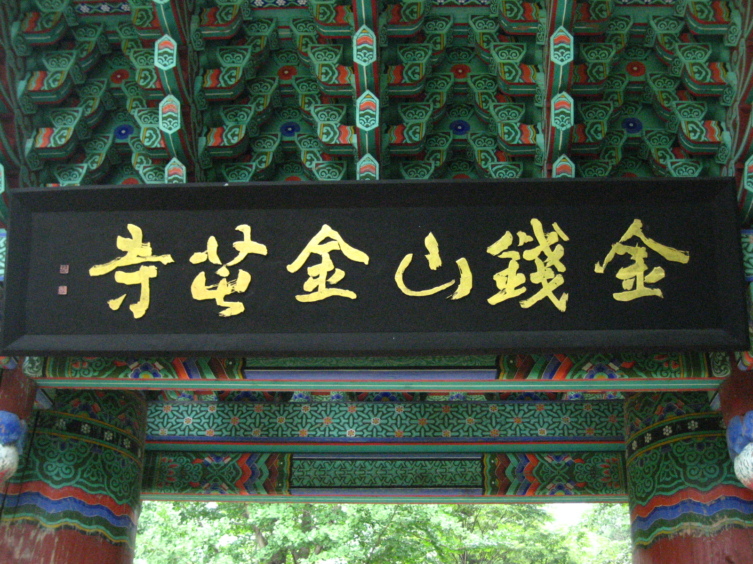 金錢山金芚寺